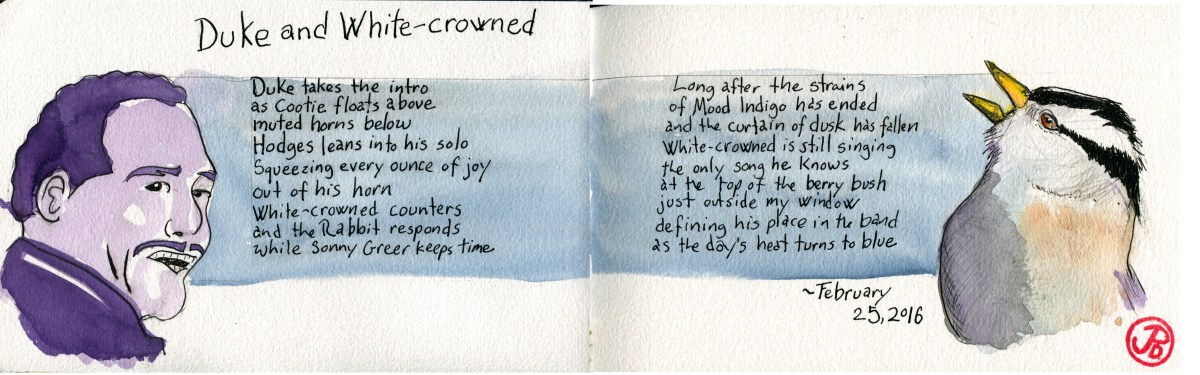 Duke and White-crowned
Duke takes the intro
as Cootie floats above
muted horns below
Hodges leans into his solo
Squeezing every ounce of joy
out of his horn
White-crowned counters
and the Rabbit responds
while Sonny Greer keeps time
Long after the strains
of Mood Indigo has ended
and the curtain of dusk has fallen
White-crowned is still singing
the only song he knows
at the top of the berry bush
just outside my window
defining his place in the band
as the day's heat turns to blue
~February
25, 2016